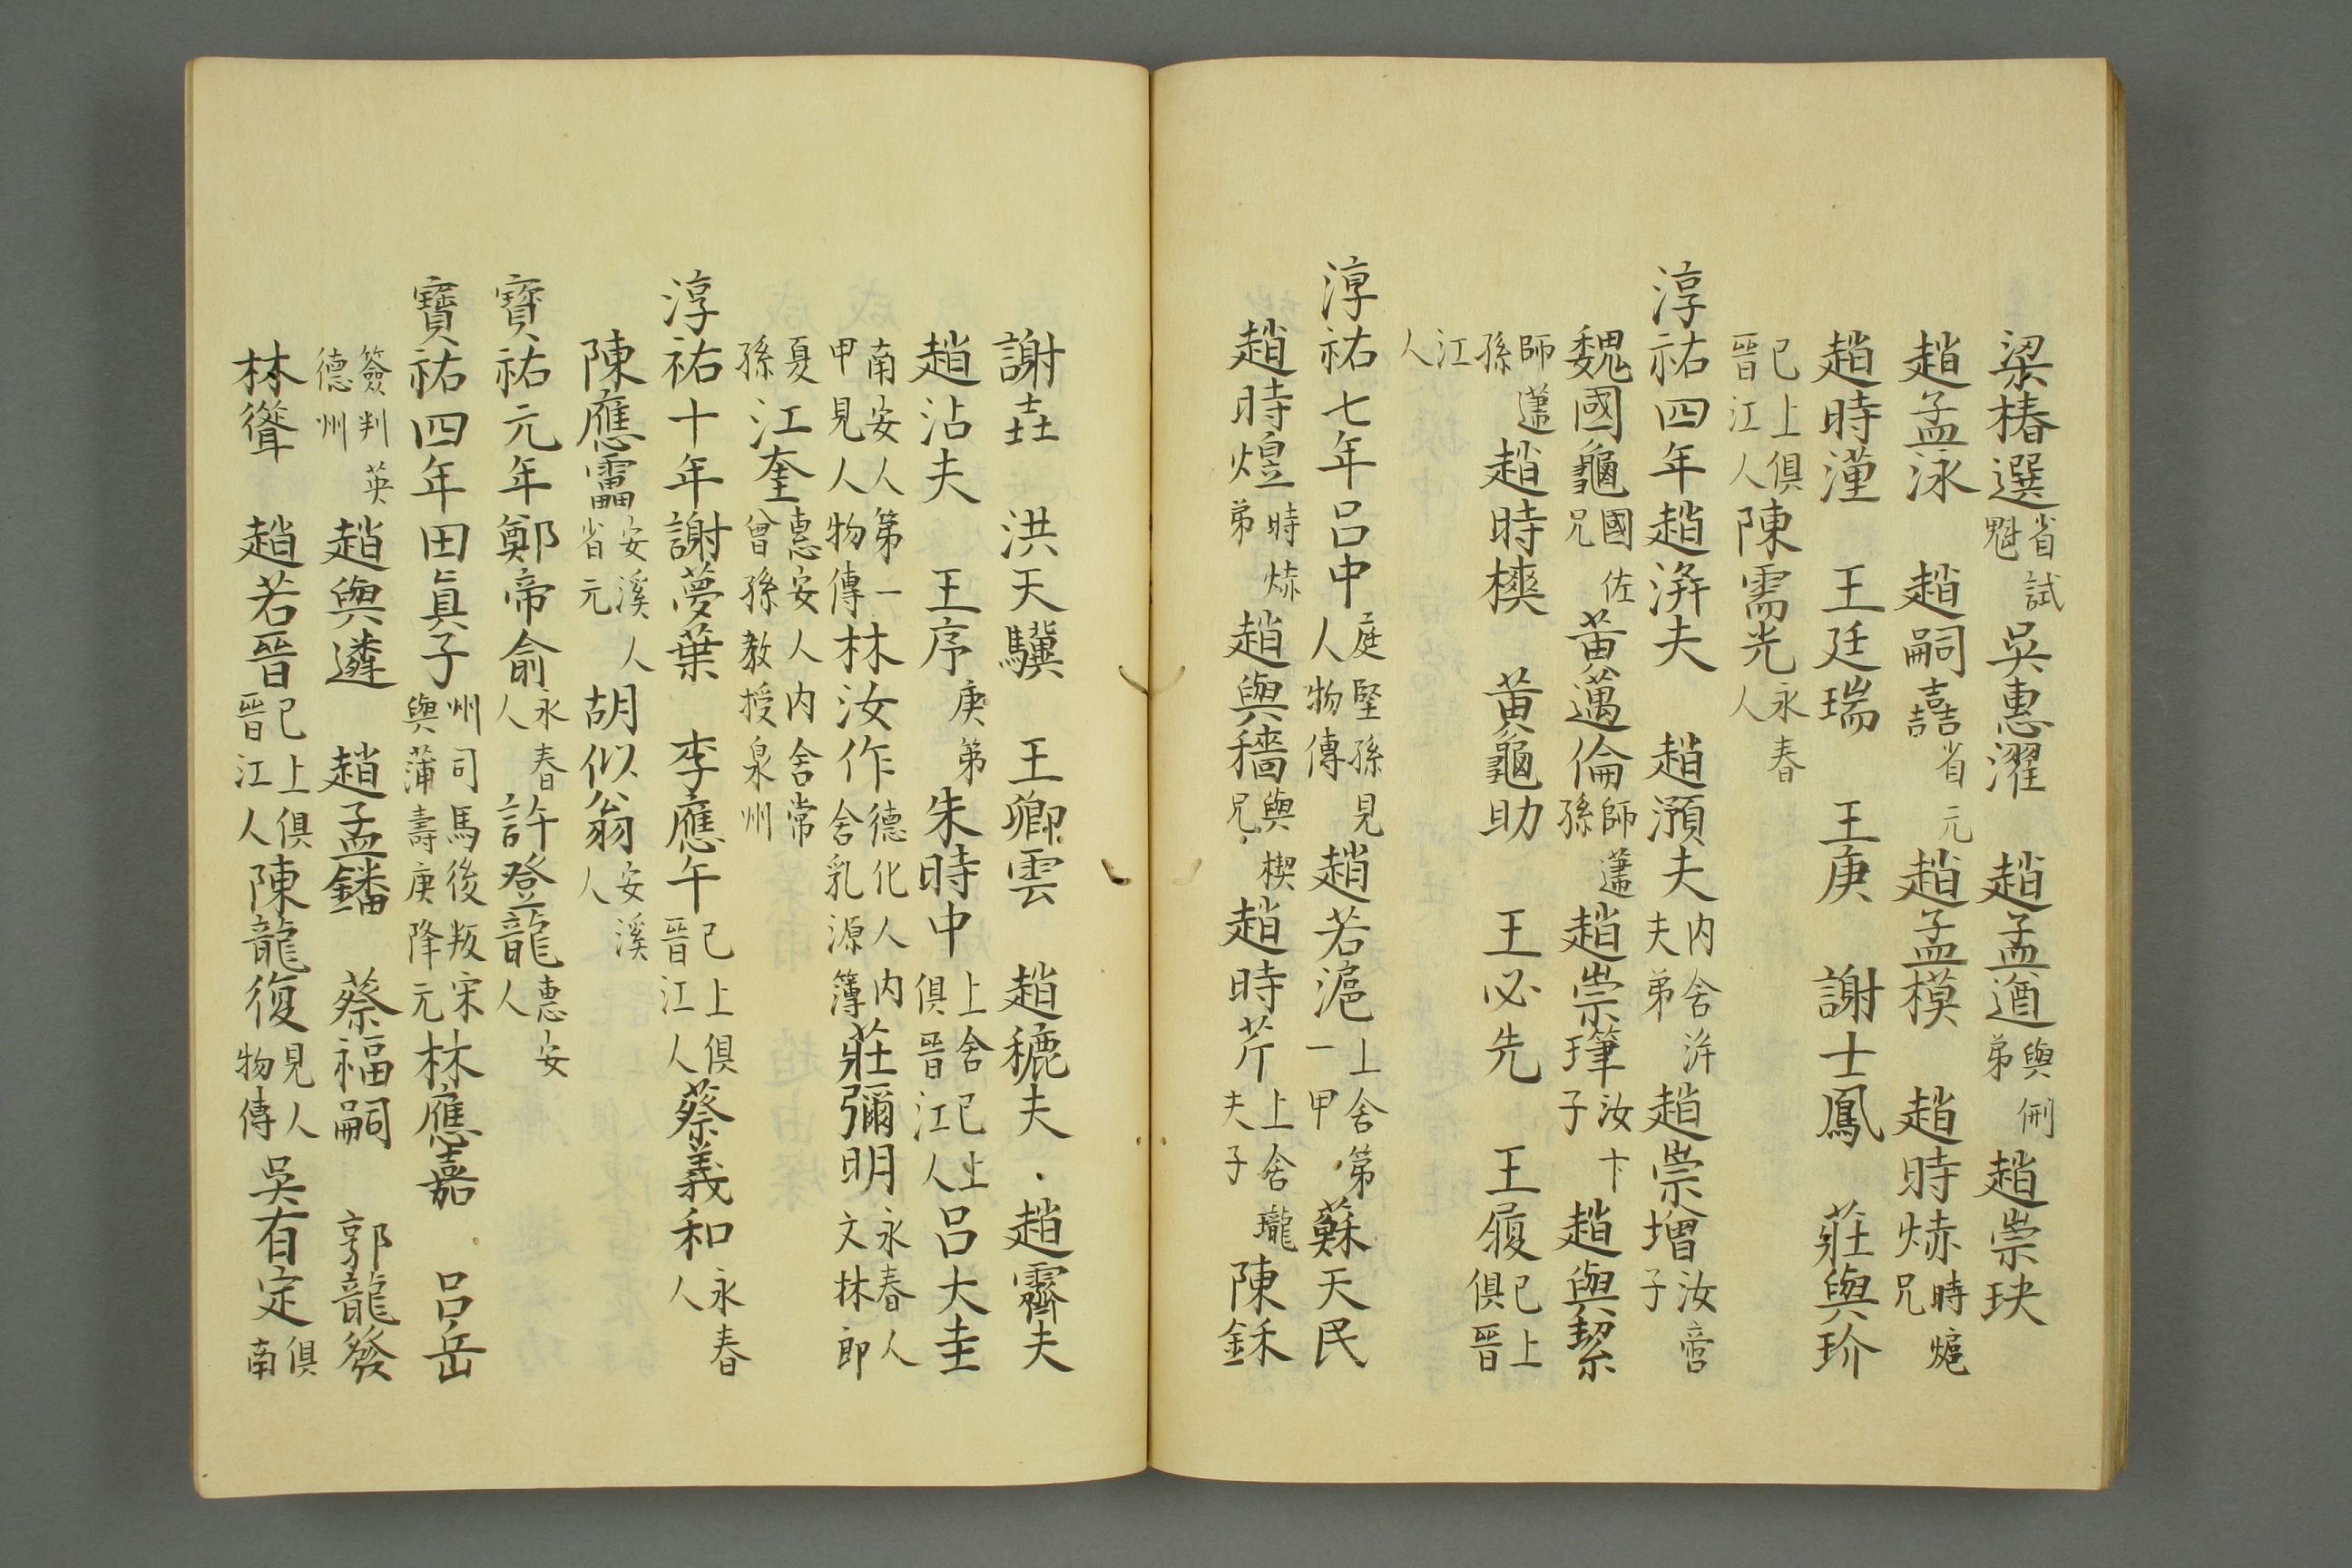 梁椿選省試魁 吳惠濯 趙孟遒與侀弟 趙崇玦
趙孟泳 趙嗣嚞省元 趙孟模 趙時㶷時熩兄
趙時漌 王廷瑞 王庚 謝士鳳 莊與玠
已上俱晉江人 陳霱光永春人
淳祐四年趙㳽夫 趙澦夫內舍洴夫弟 趙崇增汝啻子
魏國龜國佐兄 黃邁倫師藘孫 趙崇 汝卞子 趙與㓗
師藘孫 趙時樉 黃龜助 王必先 王履已上俱晉
江人
淳祐七年呂中庭堅孫見人物傳 趙若滬上舍第一甲 蘇天民
趙時煌時㶷弟 趙與穡與楔兄 趙時芹上舍瓏夫子 陳鉌
謝壵 洪天驥 王卿雲 趙穮夫 趙霽夫
趙沾夫 王序庚弟 朱時中上舍已上俱晉江人 呂大圭
南安人第一甲見人物傳 林汝作德化人內舍乳源簿 莊彌明永春人文林郎
夏孫 江奎惠安人內舍常曾孫教授泉州
淳祐十年謝夢葉 李應午已上俱晉江人 蔡義和永春人
陳應靁安溪人省元 胡似翁安溪人
寶祐元年鄭帝俞永春人 許登龍惠安人
寶祐四年田眞子州司馬後叛宋與蒲壽庚降元 林應嘉 呂岳
簽判英德州 趙與遴 趙孟鐇 蔡福嗣 郭龍發
林聳 趙若晉已上俱晉江人 陳龍復見人物傳 吳有定俱南